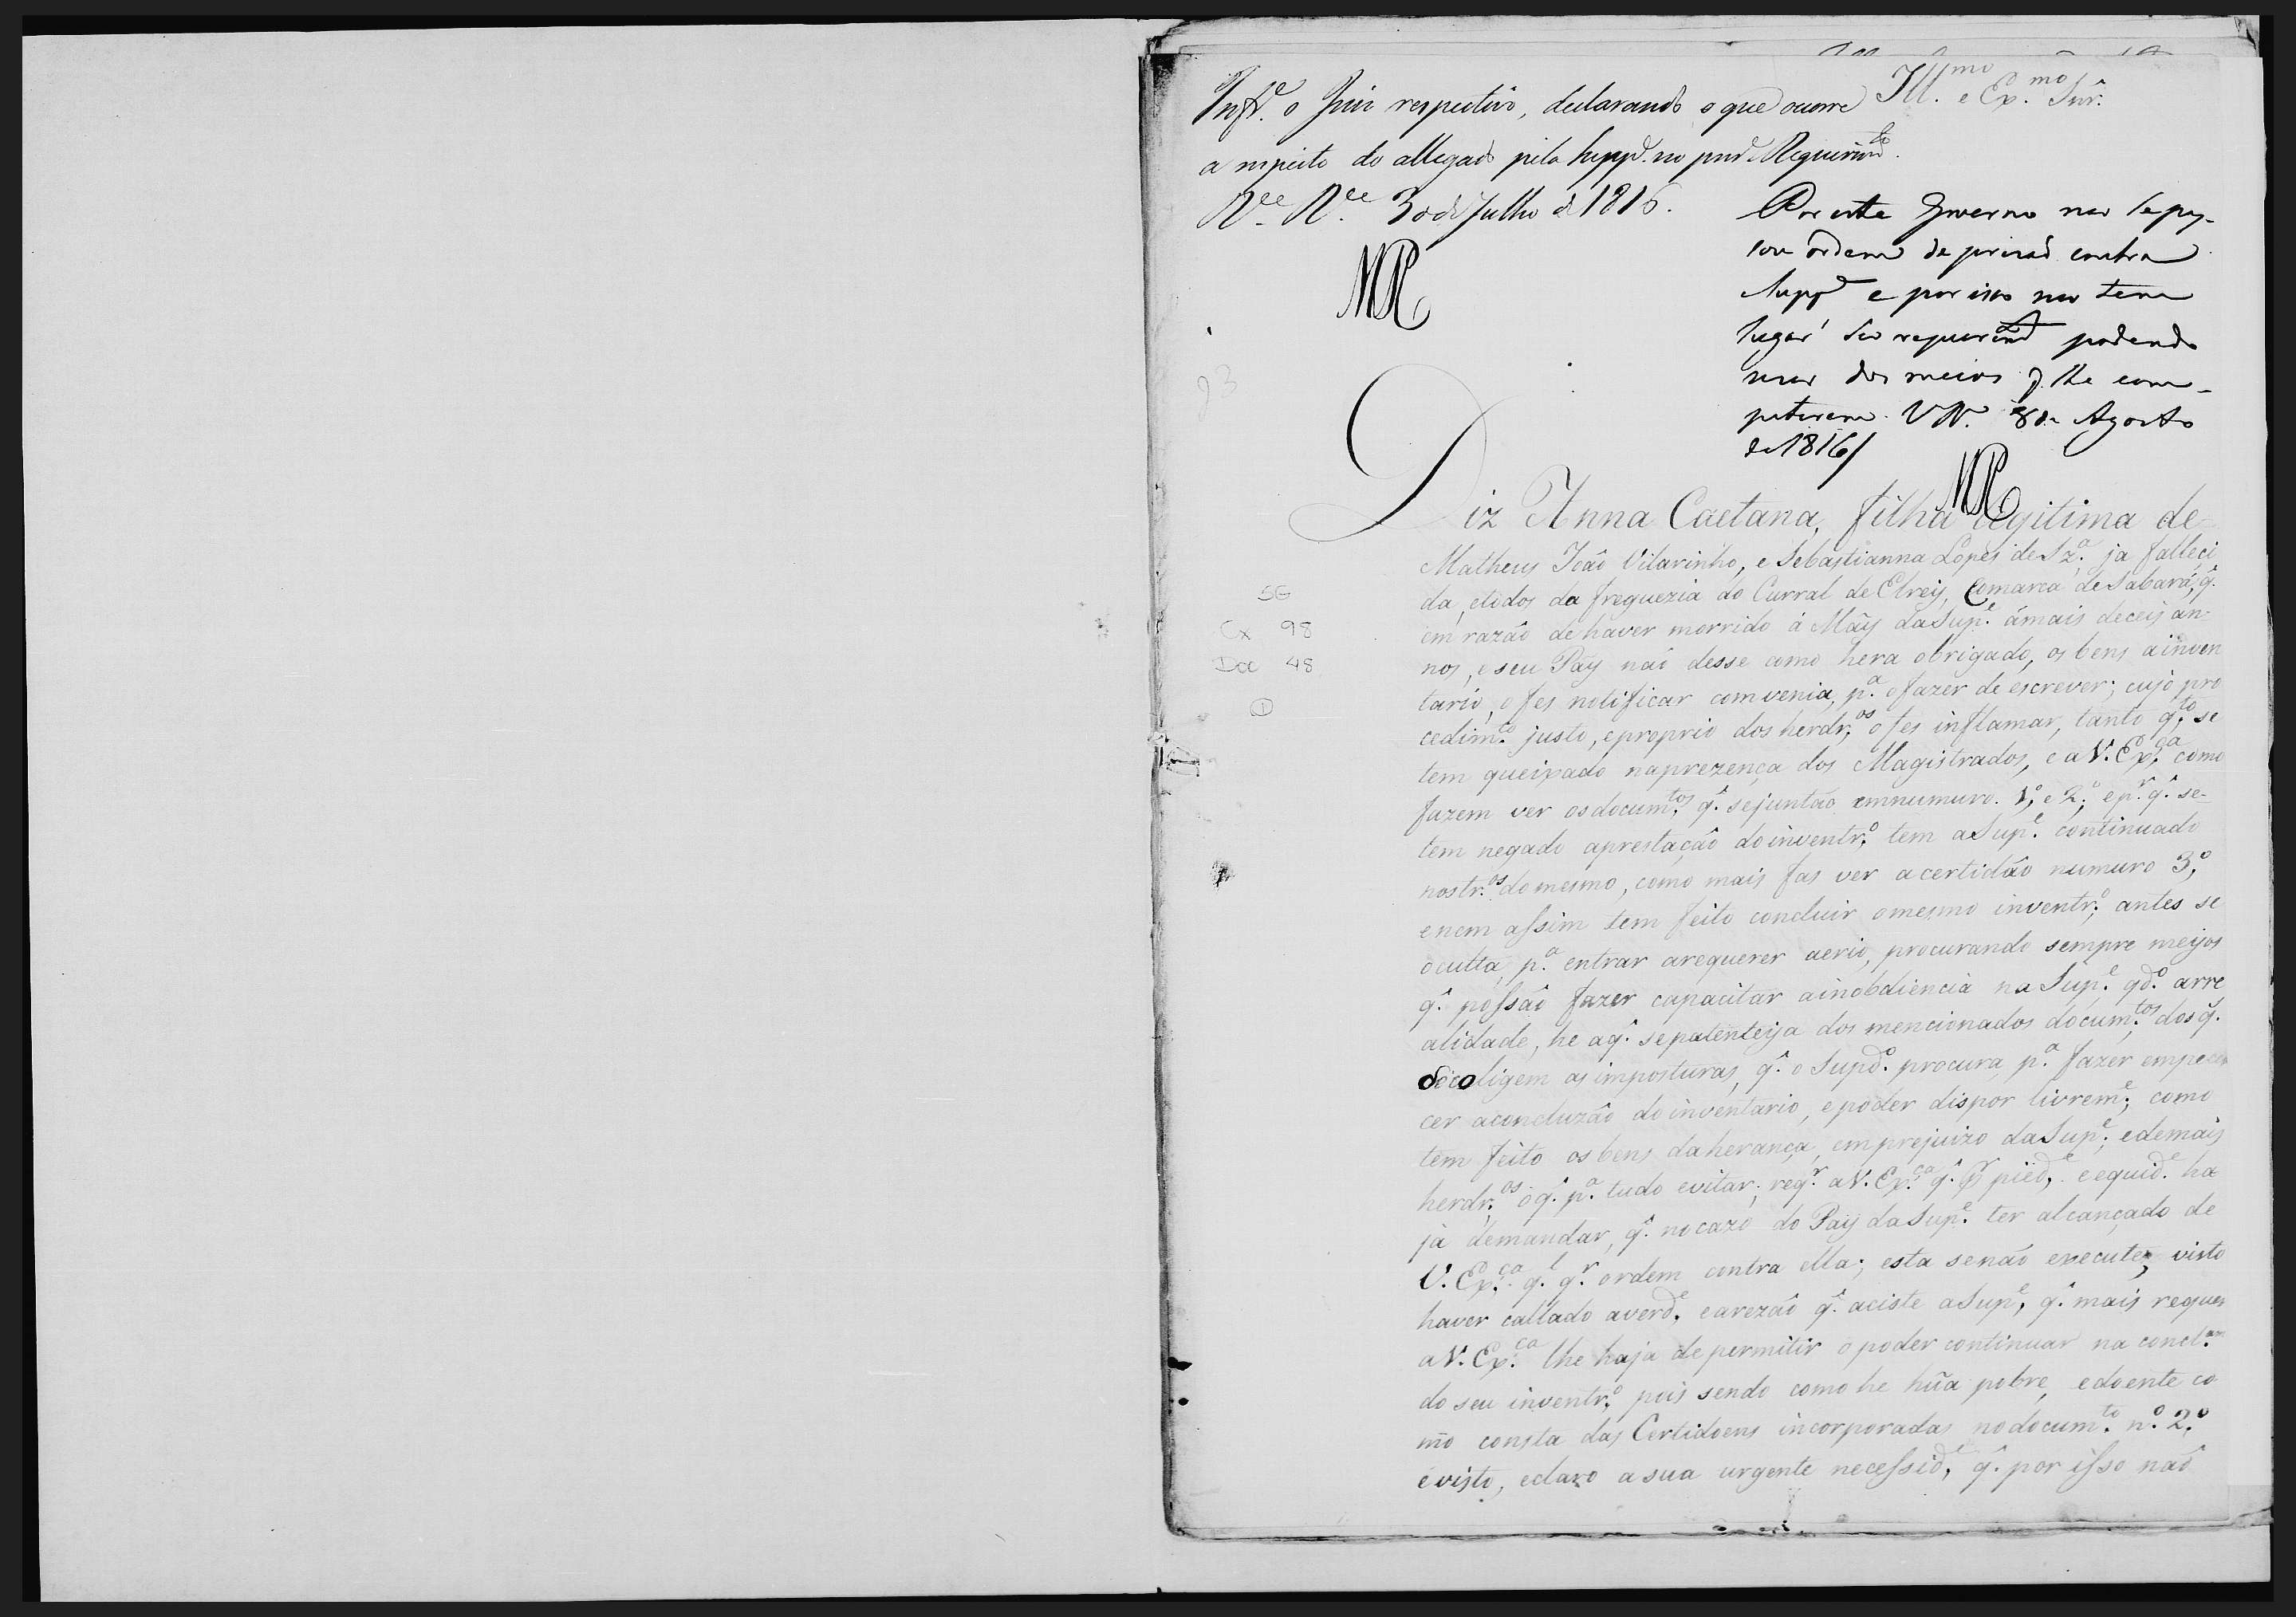 Ill.mo e Ex.mo Snr.
Infr.e o Juiz respectivo, declarando o que ocorre
a respeito do allegado pela Supp.e no pnr.e Requerim.to
3o de Julho de 1816.
MR
Por este Governo não se pas-
sou ordem de prizaõ contra
Supp.e e por isso não tem
lugar seu requerim.to podendo
usar dos meios q̃ lhe com-
petirem. V.ª R.ª 8 de Agosto
de 1816/
MR
93
SG
Cx 98
Doc 48
1
Diz Anna Caetana, filha legitima de
Matheus Joaõ Vilarinho, e Sebastianna Lopes de Sz.ª ja falleci
da, etidos da freguezia do Curral de Elrey, Comarca de Sabará, q.̂
em razaõ de haver morrido á Mãy da Sup.e ámais de ceis an-
nos, e seu Pay naõ desse como hera obrigado, os bens a inven
tario, o fes notificar com venia, p.ª o fazer de escrever; cujo pro
cedim.to justo, e proprio dos herdr.os o fes inflamar, tanto q.to se
tem queixado na prezença dos Magistrados, e a V. Ex.ca como
fazem ver os docum.tos q.̂ se juntaõ em numuro. 1.º e 2.º, e p.r q.̂ se-
tem negado aprestaçaõ do inventr.º tem a Sup.e continuado
nos tr.os do mesmo, como mais fas ver a certidaõ numuro 3.º
e nem assim tem feito concluir o mesmo inventr.º, antes se
oculta, p.ª entrar a requerer aerio, procurando sempre meijos
q.̂ possaõ fazer capacitar a inobdiencia na Sup.e qd.º arre
alidade, he a q.̂ se patenteija dos mencionados docum.tos dos q.̂
se coligem as imposturas, q.̂ o Supd.º procura p.ª fazer empe
cer a concluzaõ do inventario, e poder dispor livrem.e, como
tem feito os bens da herança, em prejuizo da Sup.e; e demais
herdr.os o q.̂ p.ª tudo evitar; req.r a V. Ex.ca q.̂ p.r pied.e e equid.e ha
ja demandar, q.̂ no cazo do Pay da Sup.e ter alcançado de
V. Ex.ca q.l q.r ordem contra ella; esta se naõ execute, visto
haver callado a verd.e e a rezaõ q.̂ aciste a Sup.e, q.̂ mais requer
a V. Ex.ca lhe haja de permitir o poder continuar na concl.am
do seu inventr.º pois sendo como he hũa pobre, e doente co
mo consta das Certidoens incorporadas no docum.to n.º 2.º
é visto, e claro a sua urgente necessid.e, q.̂ por isso naõ